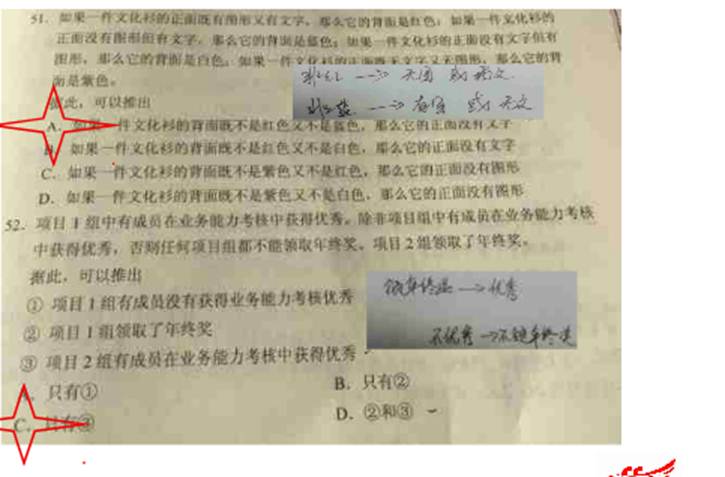 51. 如果一件文化衫的正面既有图形又有文字，那么它的背面是红色；如果一件文化衫的
正面没有图形但有文字，那么它的背面是蓝色；如果一件文化衫的正面没有文字但有
图形，那么它的背面是白色；如果一件文化衫的正面既无文字又无图形，那么它的背
面是紫色。
据此，可以推出
非红 --> 无图 或 无文
非蓝 --> 有图 或 无文
A. 如果一件文化衫的背面既不是红色又不是蓝色，那么它的正面没有文字
如果一件文化衫的背面既不是红色又不是白色，那么它的正面没有文字
C. 如果一件文化衫的背面既不是紫色又不是红色，那么它的正面没有图形
D. 如果一件文化衫的背面既不是紫色又不是白色，那么它的正面没有图形
52. 项目1组中有成员在业务能力考核中获得优秀。除非项目组中有成员在业务能力考核
中获得优秀，否则任何项目组都不能领取年终奖。项目2组领取了年终奖。
据此，可以推出
① 项目1组有成员没有获得业务能力考核优秀
领年终奖 --> 优秀
② 项目1组领取了年终奖
不优秀 -->不领年终奖
③ 项目2组有成员在业务能力考核中获得优秀
只有①
B. 只有②
C. 只有③
D. ②和③